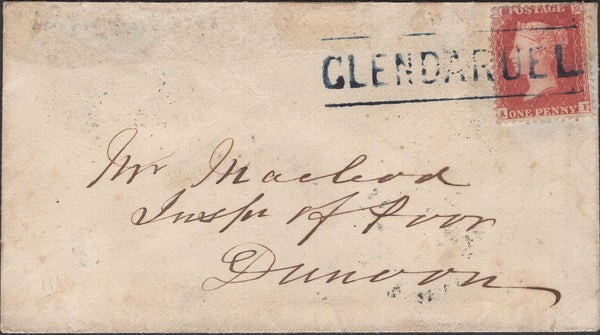 POSTAGE
GLENDARUEL
A E
ONE PENNY
Mr Macleod
Inspr of Poor
Dunoon